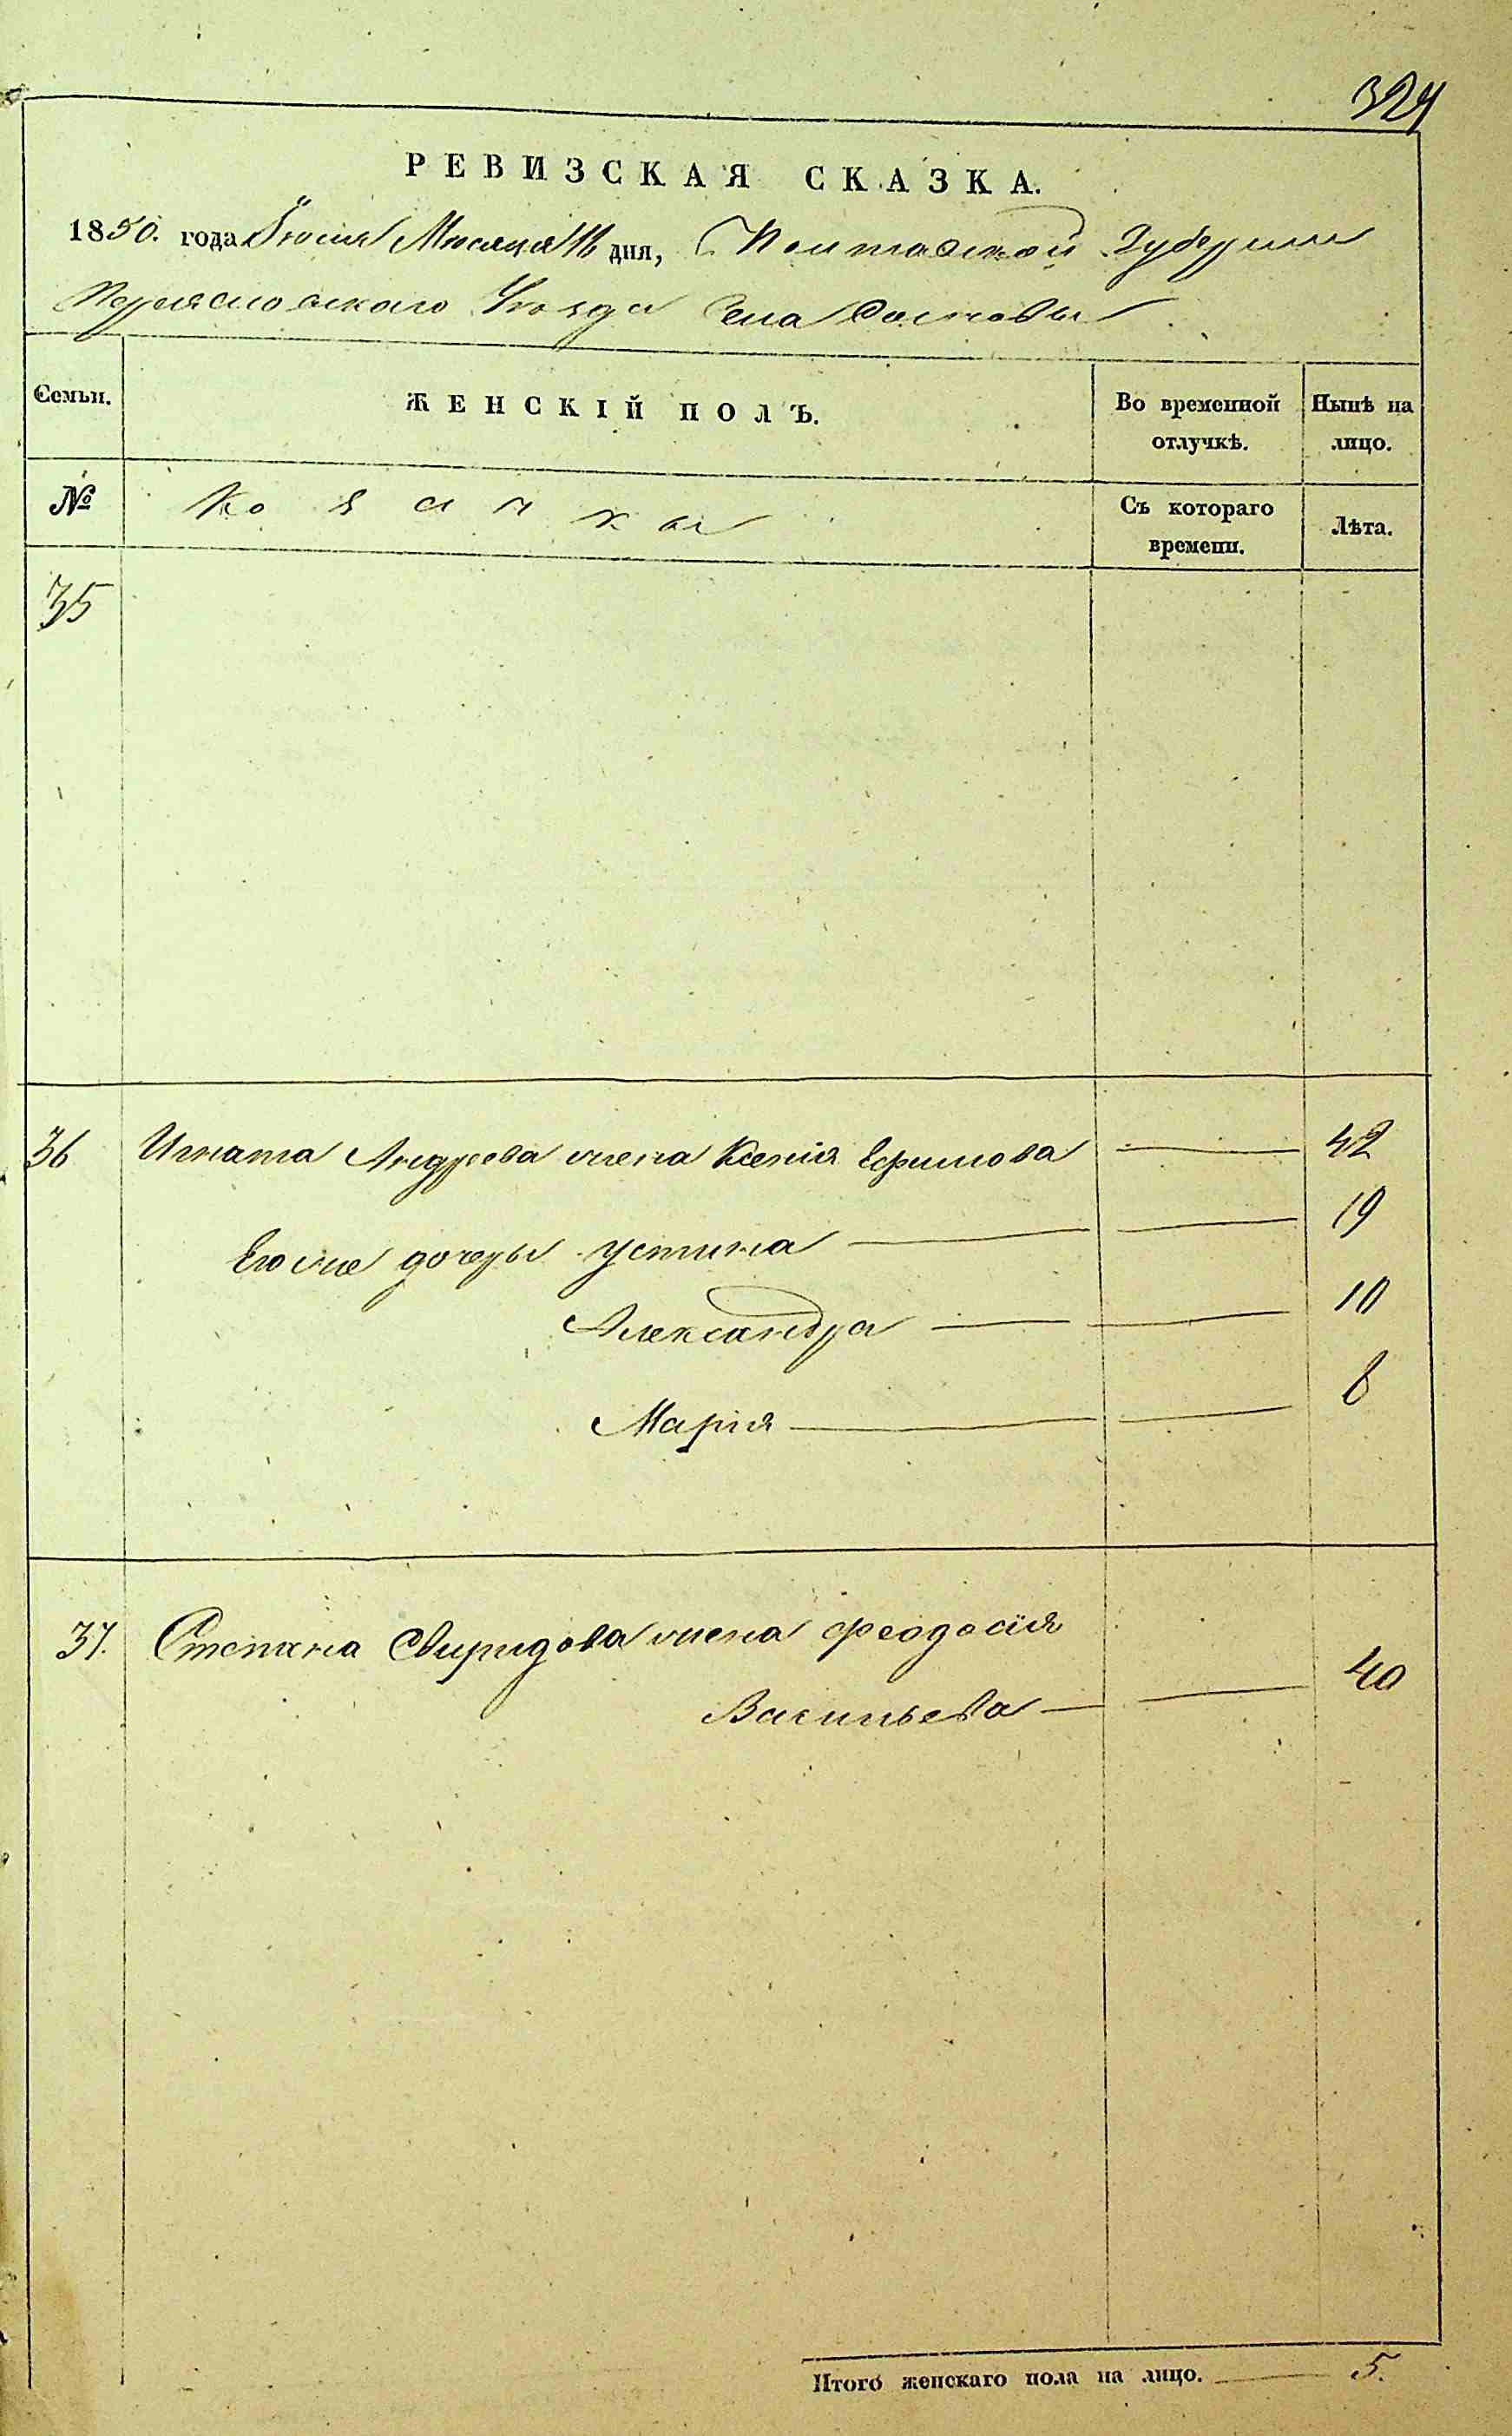 324
РЕВИЗСКАЯ СКАЗКА.
1850. года Іюня Месяца 16 дня, Полтавской Губернии
Переясловского Уезда Села
Семьи.
ЖЕНСКІЙ ПОЛЪ.
Во временной отлучкѣ.
Нынѣ на лицо.
№
Козачки
Съ котораго времени.
Лѣта.
35
36 Игната Андреева жена Ксенія Ефимова — 42
Его же дочеры Устина — 19
Александра — 10
Марія — 8
37. Степана Свиридова жена Феодосія
Васильева — 40
Итого женскаго пола на лицо. — 5.